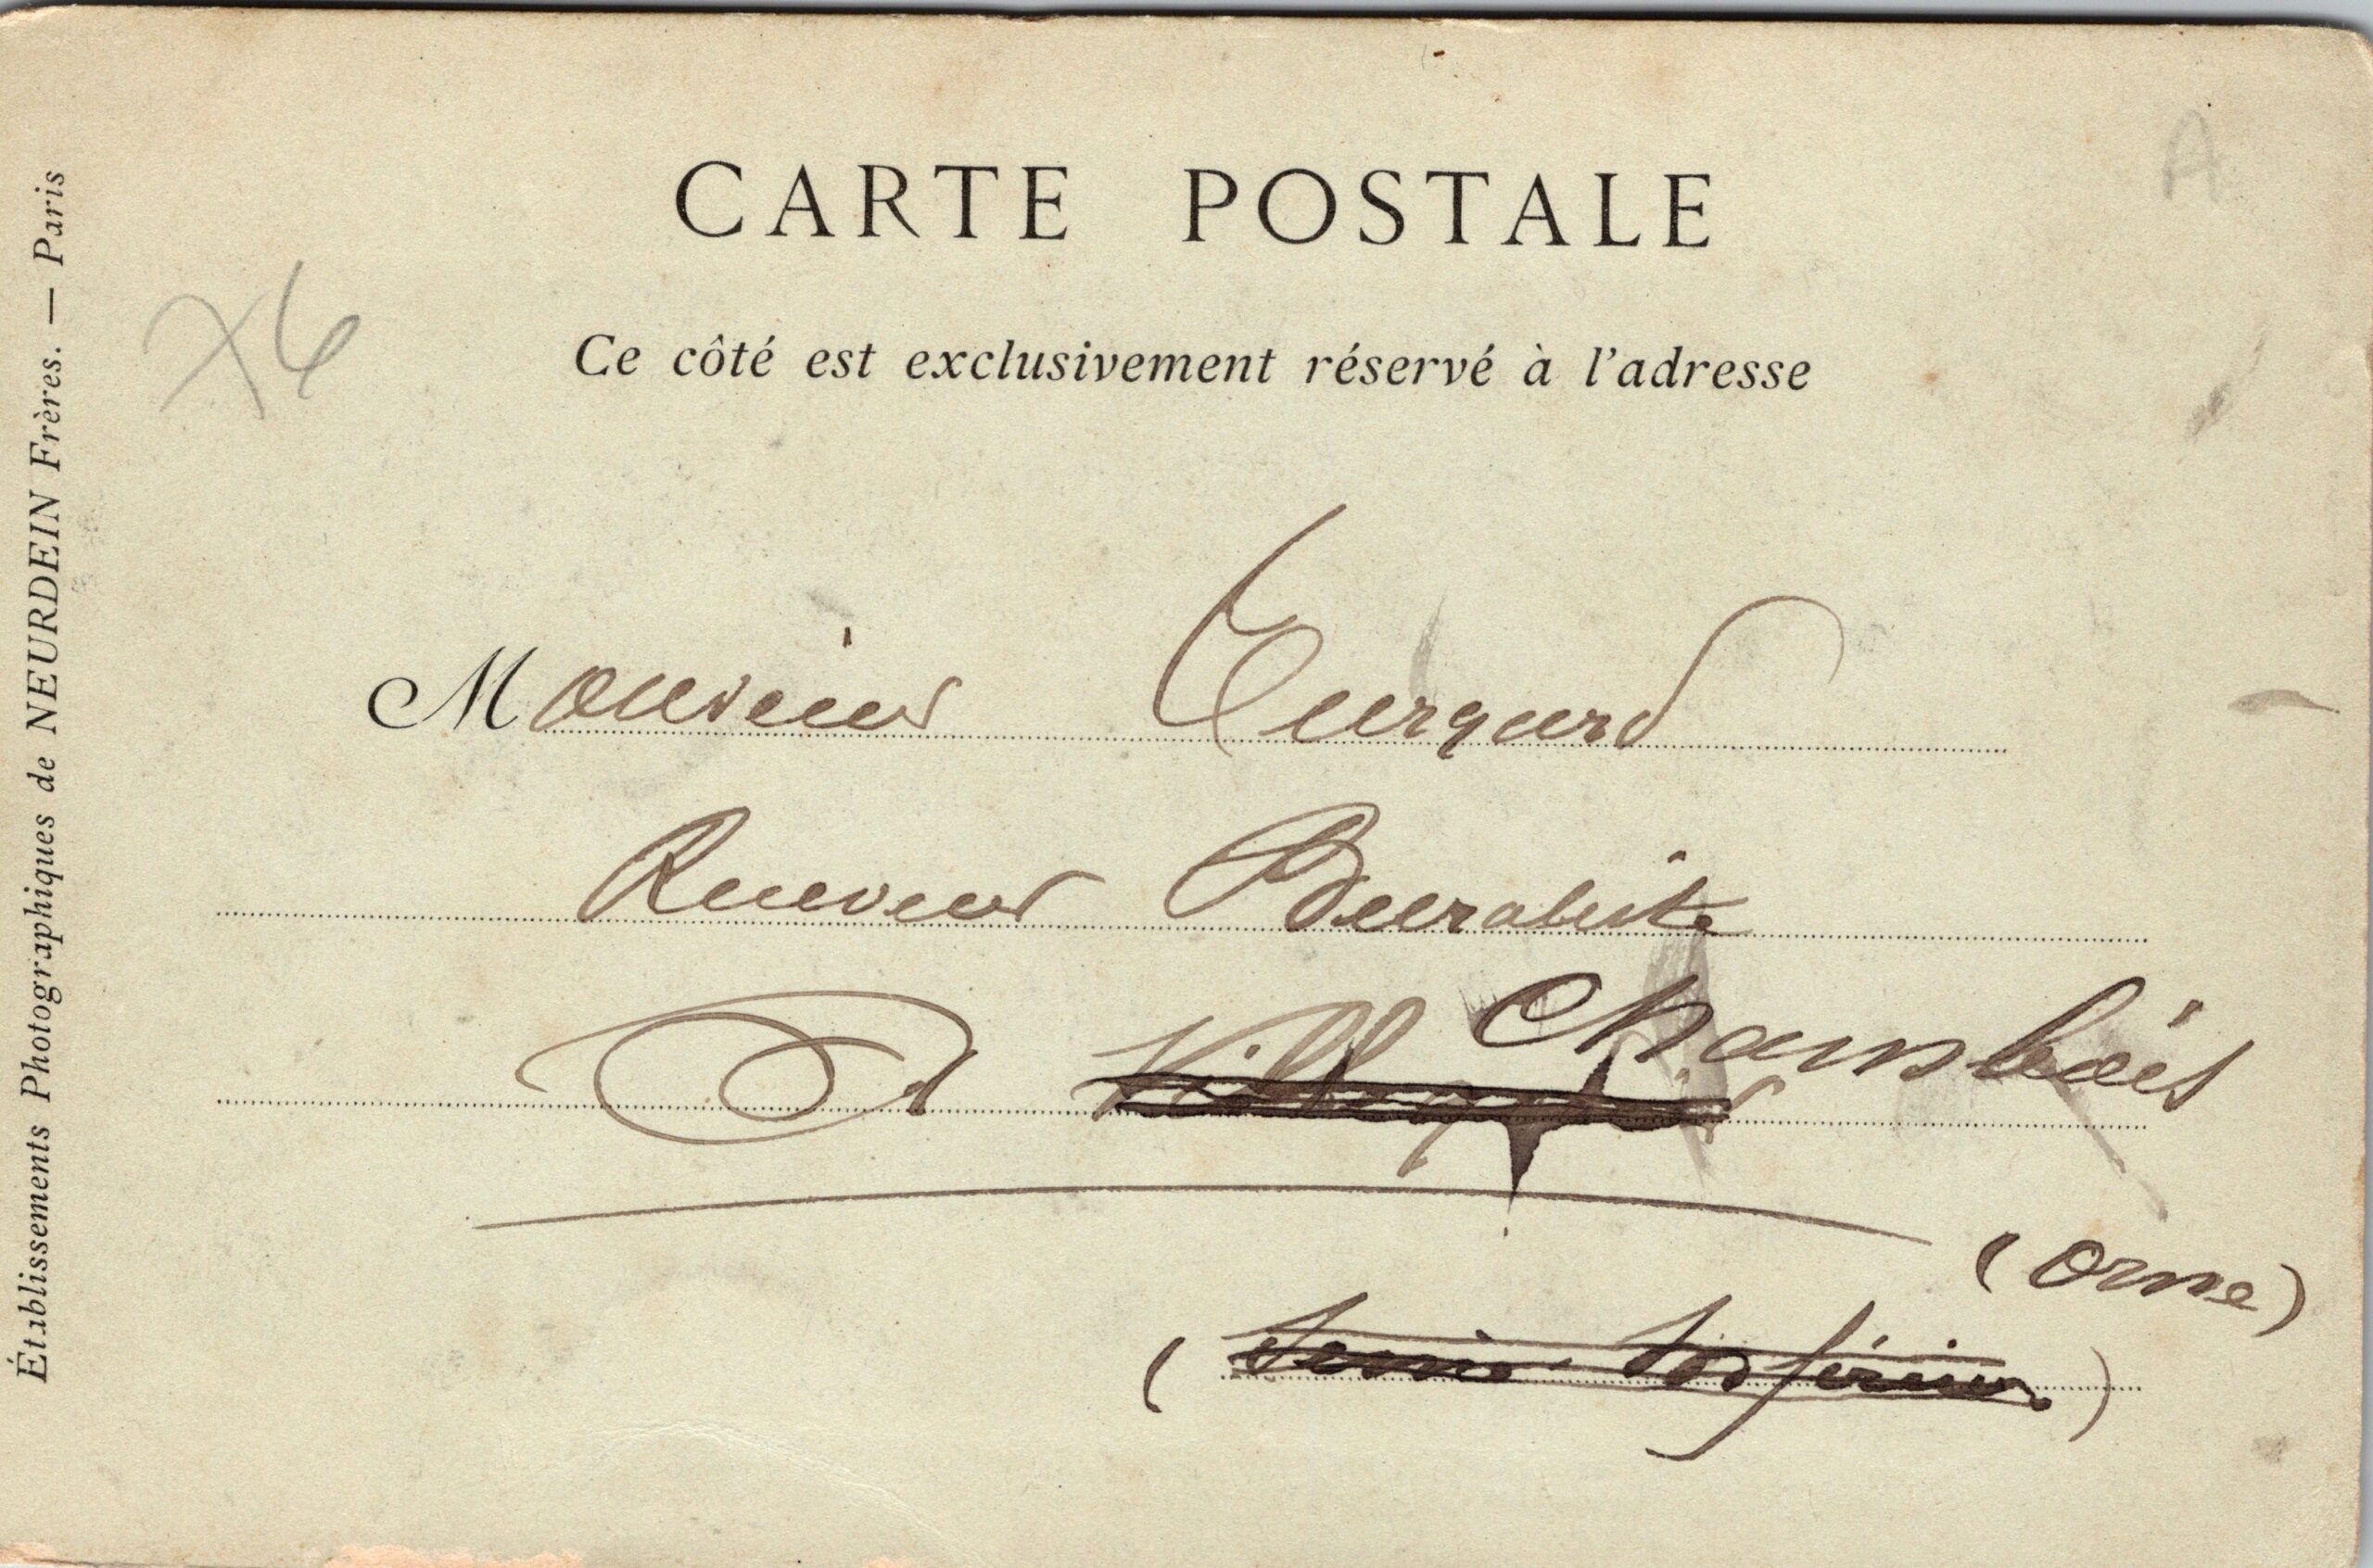 A
CARTE POSTALE
X6
Ce côté est exclusivement réservé à l'adresse
Monsieur Turquard
Receveur Buraliste
à Chambois
(Orne)
(Seine Inférieure)
Établissements Photographiques de NEURDEIN Frères. — Paris